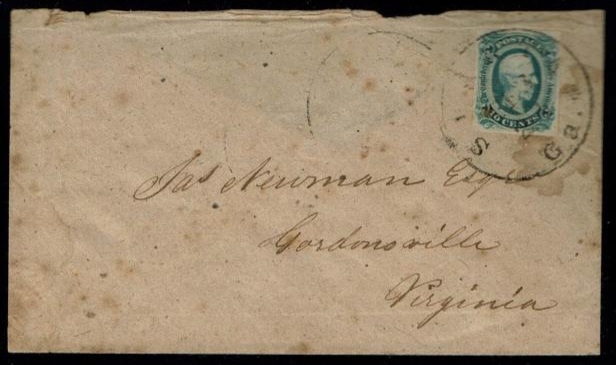 POSTAGE
CENTS
S Ga.
Jas Newman Esqr
Gordonsville
Virginia